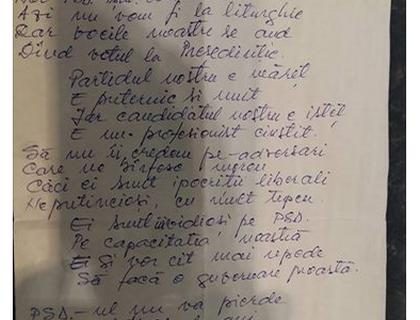 Azi nu vom fi la liturghie
Dar vocile noastre se aud
Dînd votul la Presedenție.
Partidul nostru e măreț
E puternic și unit
Iar candidatul nostru e isteț
E un profesionist cinstit!
Să nu îi credem pe-adversari
Care ne bîrfesc mereu
Căci ei sînt ipocriții liberali
Neputincioși, cu mult tupeu.
Ei sînt invidioși pe PSD.
Pe capacitatea noastră
Și vor cît mai repede
Să facă o guvernare proastă.
PSD-ul nu va pierde